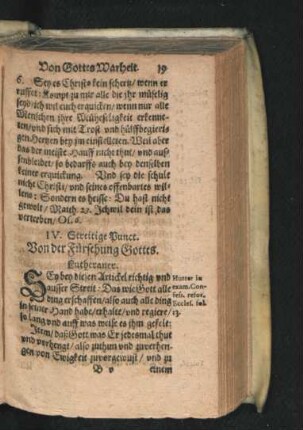 Von Gottes Warheit. 19
6. Sey es Christo kein schertz / wenn er
ruffet: Kompt zu mir alle die jhr müselig
seyd / ich wil euch erquicken / wenn nur alle
Menschen jhre Müheseligkeit erkenne-
ten / und sich mit Trost und hülffbegierig
gen Hertzen bey jm einstelleten. Weil aber
das der meiste Hauff nicht thut / und auß
senbleibet / so bedarffs auch bey denselben
keiner erquickung. Und sey die schult
nicht Christi / und seines offenbarten wil-
lens: Sondern es heisse: Du hast nicht
gewolt / Matth. 23. Ich wil dein ist das
verterben / Os.
IV. Streitige Punct.
Von der Fürsehung Gottes.
Lutheraner.
Es bey diesen Artickel richtig und
ausser Streit: Das wie Gott alle
ding erschaffen / also auch alle ding
in seiner Hand habe / erhalte / und regiere /
so lang und auff was weise es ihm gefelt:
Item / daß Gott was Er jedesmal thut
und verhengt / also zuthun und zuverhen-
gen von Ewigkeit zuvorgewust / und zu
B v einem
Hutter in
exam. Con-
fess.
Eccles. fol.
13.